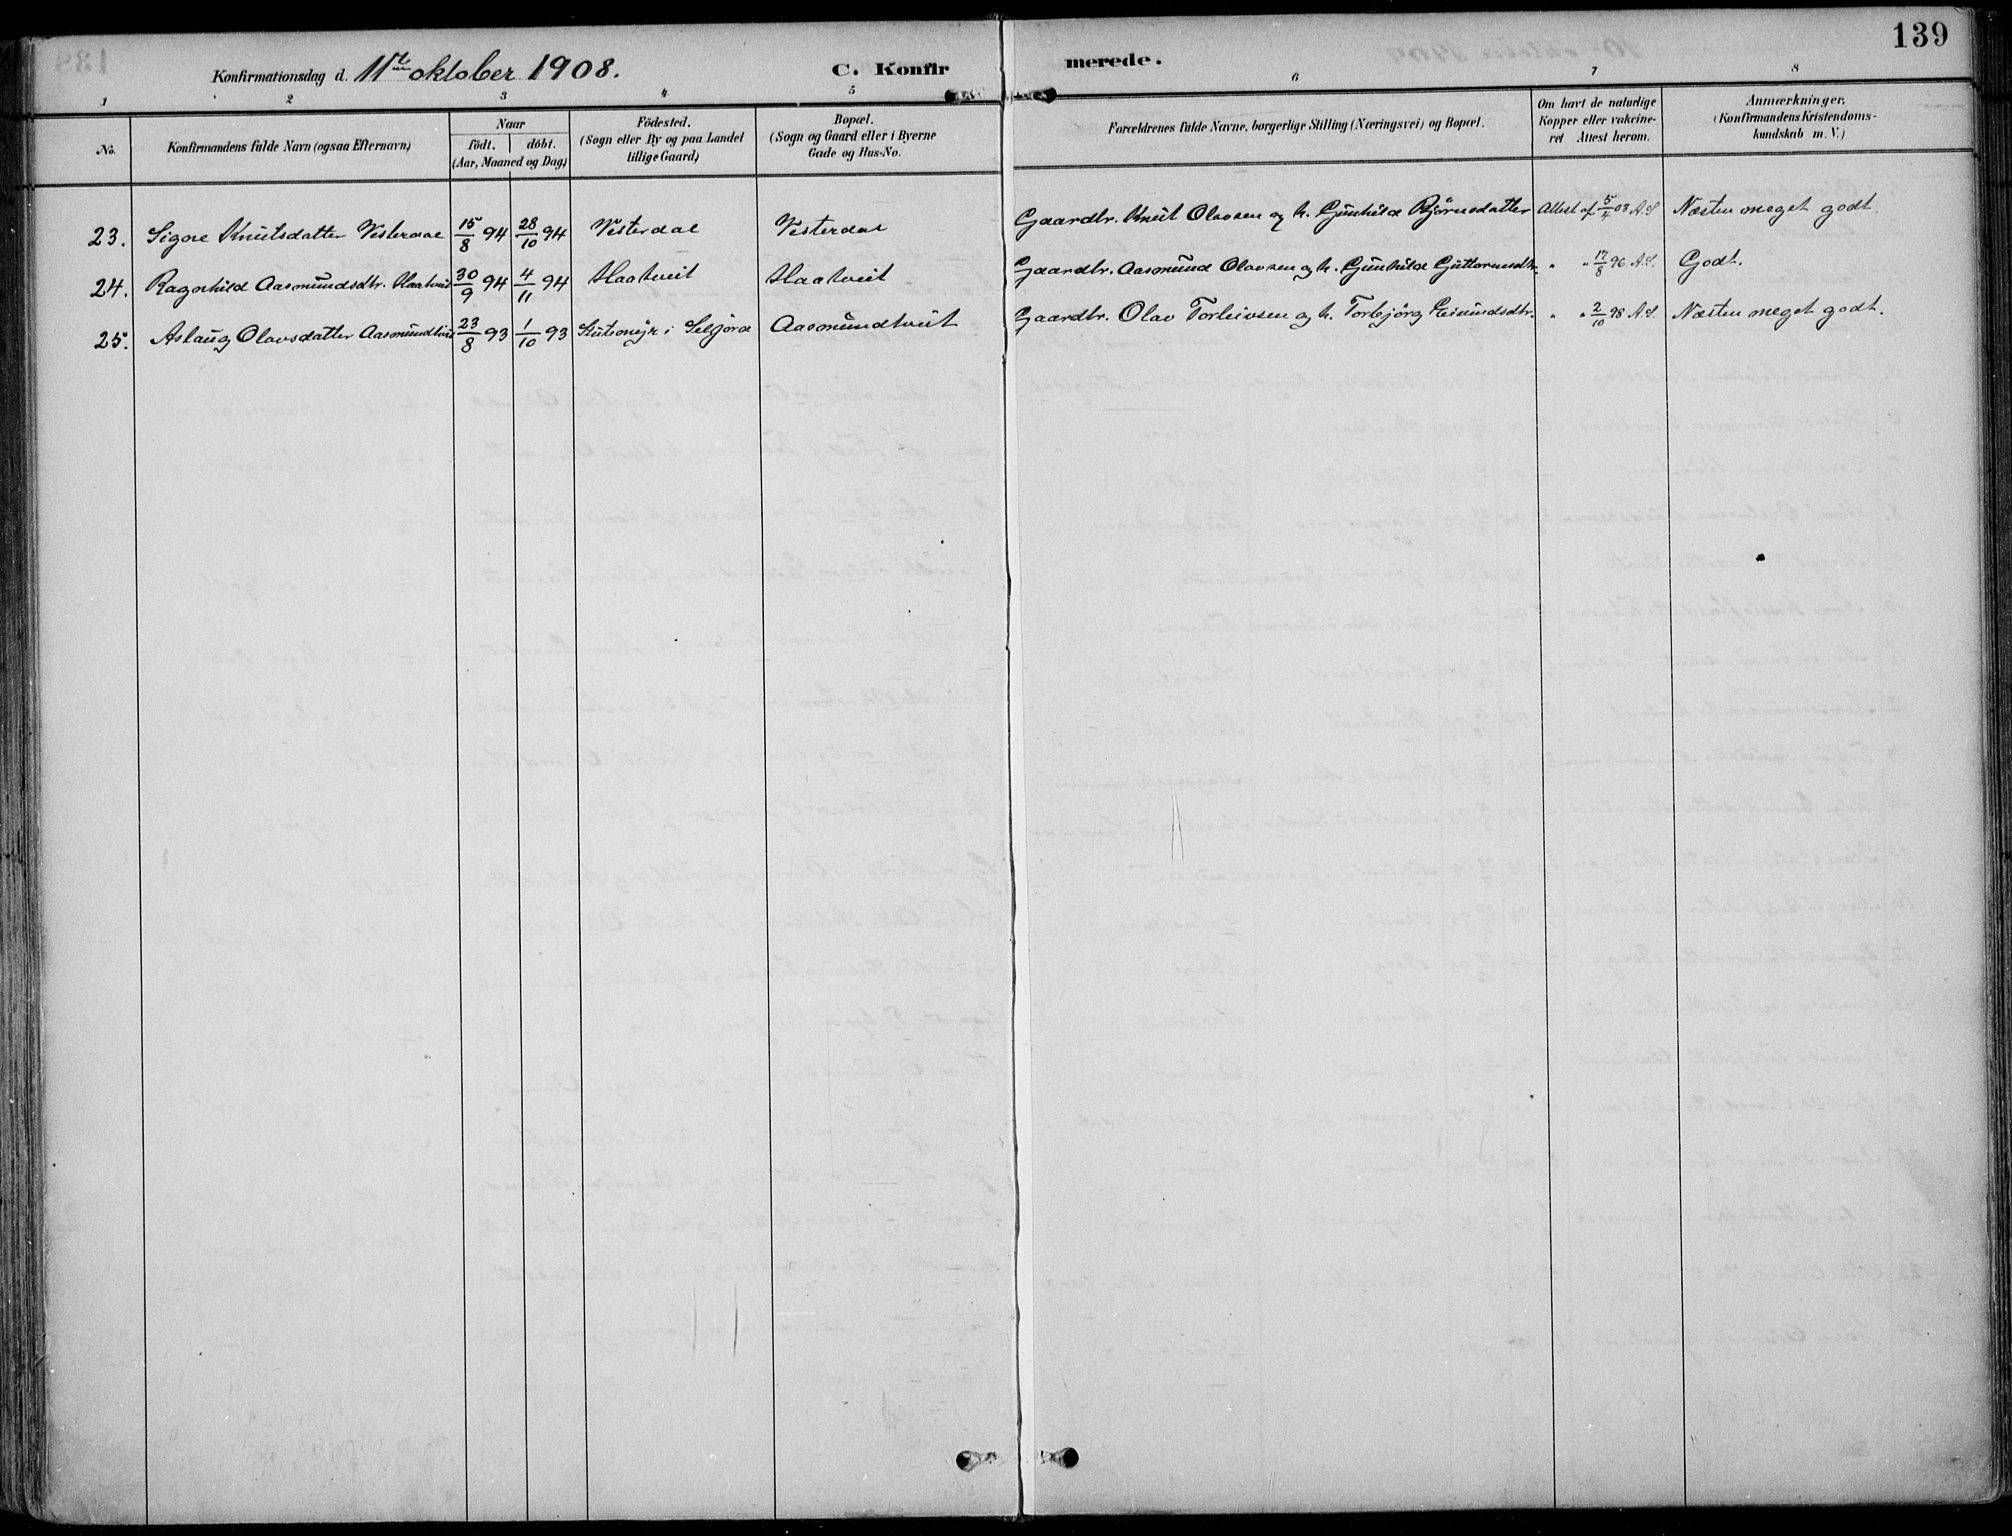 139
Konfirmationsdag d. 11te oktober 1908. C. Konfirmerede.
1 2 3 4 5 6 7 8
No.
Konfirmandens fulde Navn (ogsaa Efternavn)
Naar
födt. döbt.
(Aar, Maaned og Dag)
Födested.
(Sogn eller By og paa Landet
tillige Gaard)
Bopæl.
(Sogn og Gaard eller i Byerne
Gade og Hus-No.
Forældrenes fulde Navne, borgerlige Stilling (Næringsvei) og Bopæl.
Om havt de naturlige
Kopper eller vakcine-
ret Attest herom.
Anmærkninger,
(Konfirmandens Kristendoms-
kundskab m. V.)
23. Signe Knutsdatter Vesterdal 15/8 94 28/10 94 Vesterdal Vesterdal Gaardbr. Knut Olavsen og h. Gunhild Bjørnsdatter Attest af 5/4 03 A.S. Næsten meget godt.
24. Ragnhild Aasmundsdtr. Haatveit 30/9 94 4/11 94 Haatveit Haatveit Gaardbr. Aasmund Olavsen og h. Gunhild Guttormsdtr. " " 17/8 96 A.S. Godt.
25. Aslaug Olavsdatter Aasmundtveit 23/8 93 1/10 93 i Seljord Aasmundtveit Gaardbr. Olav Torleivsen og h. Torbjørg Eivindsdtr. " " 2/10 98 A.S. Næsten meget godt.